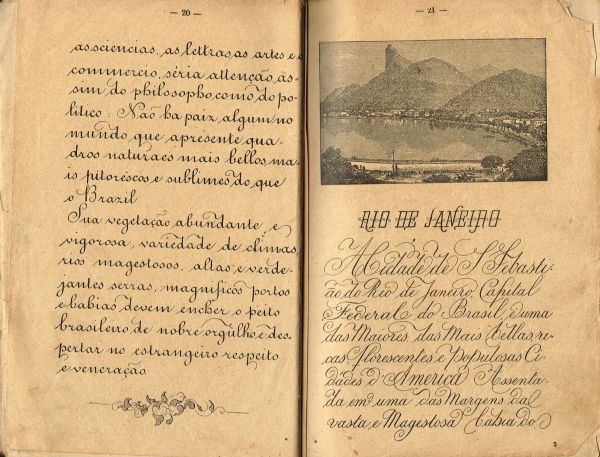 — 20 —
as sciencias, as lettras, as artes e o
commercio, séria attenção, as-
sim do philosopho, como do po-
litico; Não ha paiz algum no
mundo que apresente qua-
dros naturaes mais bellos, ma-
is pitorescos e sublimes do que
o Brazil
Sua vegetação abundante e
vigorosa, variedade de climas,
rios magestosos, altas e verde-
jantes serras, magnificos portos
e bahias devem encher o peito
brasileiro de nobre orgulho e des-
pertar no estrangeiro respeito
e veneração
— 21 —
RIO DE JANEIRO
A Cidade de S. Sebasti-
ão do Rio de Janeiro, Capital
Federal do Brasil é uma
das Maiores, das Mais Bellas, ri-
cas, florescentes, e Populosas Ci-
dades d'America Assenta-
da em uma das Margens da
vasta e Magestosa bahia do